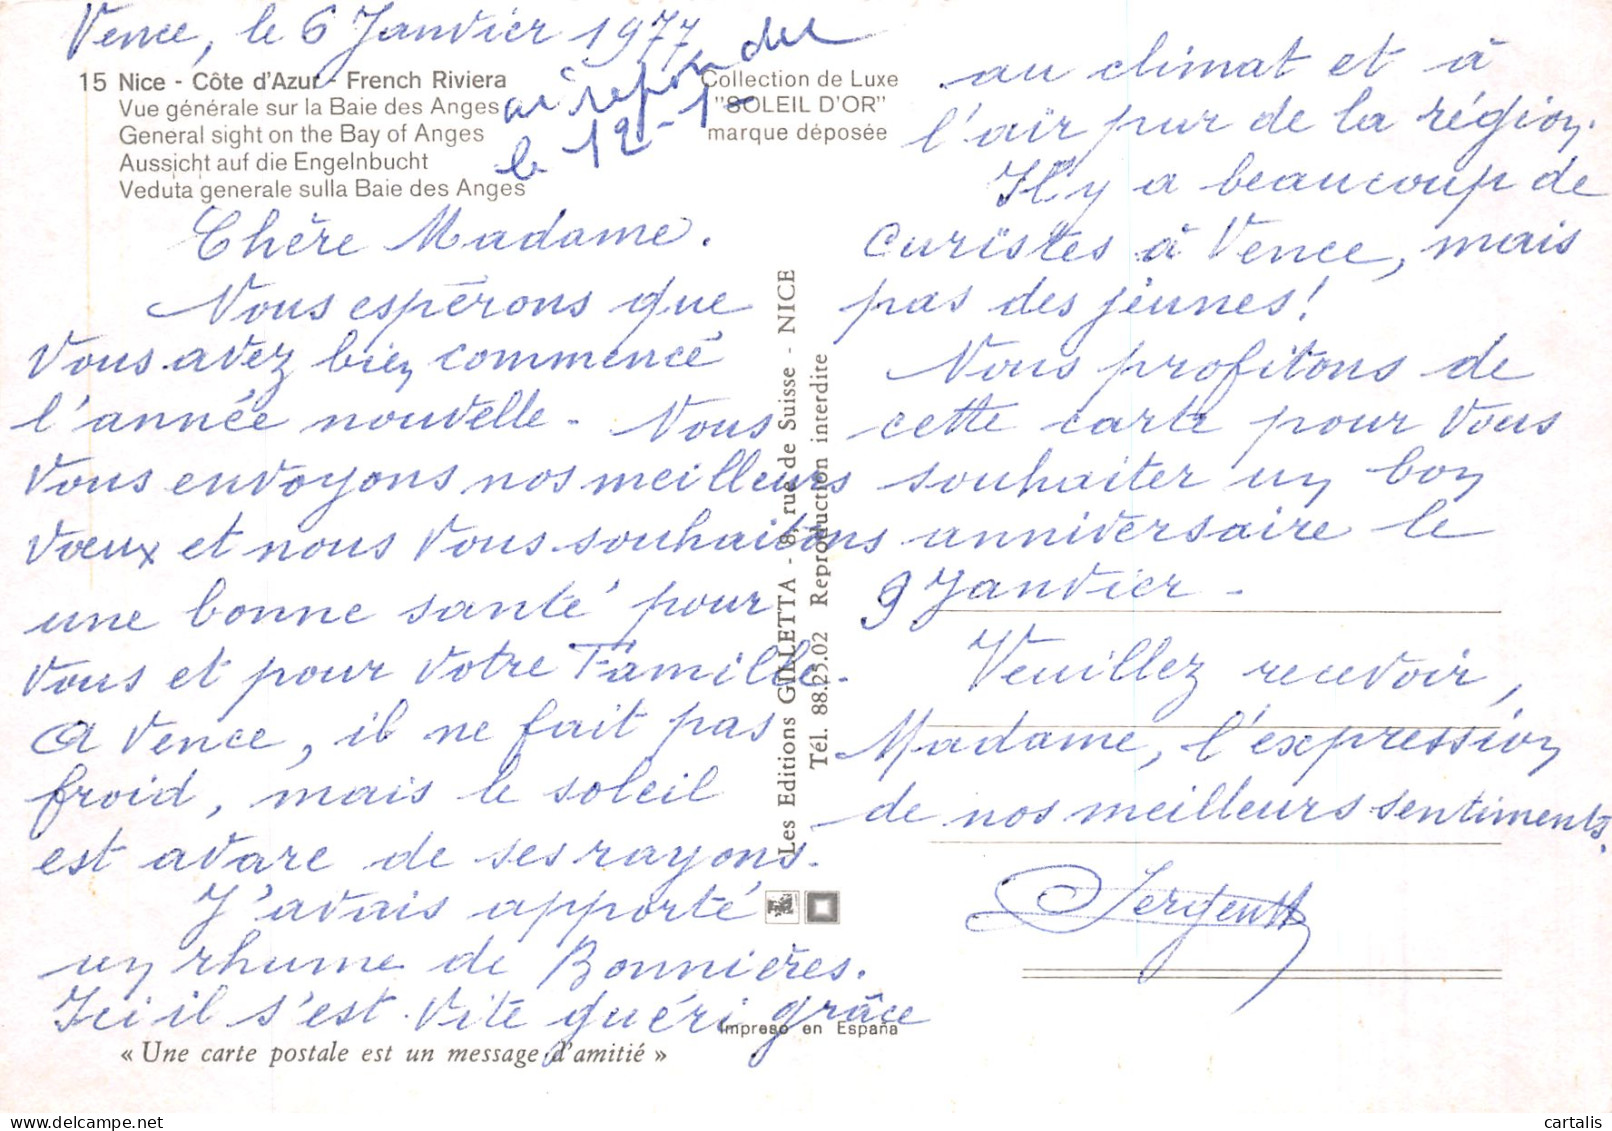 Vence, le 6 Janvier 1977
ai repondu
le 12-1-
15 Nice - Côte d'Azur - French Riviera
Vue générale sur la Baie des Anges
General sight on the Bay of Anges
Aussicht auf die Engelnbucht
Veduta generale sulla Baie des Anges
Collection de Luxe
"SOLEIL D'OR"
marque déposée
Chère Madame.
Nous espérons que
vous avez bien commencé
l'année nouvelle - Nous
vous envoyons nos meilleurs
vœux et nous vous souhaitons
une bonne santé pour
vous et pour votre Famille.
A Vence, il ne fait pas
froid, mais le soleil
est avare de ses rayons.
J'avais apporté
un rhume de Bonnières.
Ici il s'est vite guéri grâce
« Une carte postale est un message d'amitié »
Les Editions GILLETTA - 8, rue de Suisse - NICE
Tél. 88.25.02 Reproduction interdite
Impreso en España
au climat et à
l'air pur de la région.
Il y a beaucoup de
curistes à Vence, mais
pas des jeunes!
Nous profitons de
cette carte pour vous
souhaiter un bon
anniversaire le
9 Janvier -
Veuillez recevoir,
Madame, l'expression
de nos meilleurs sentiments.
cartalis